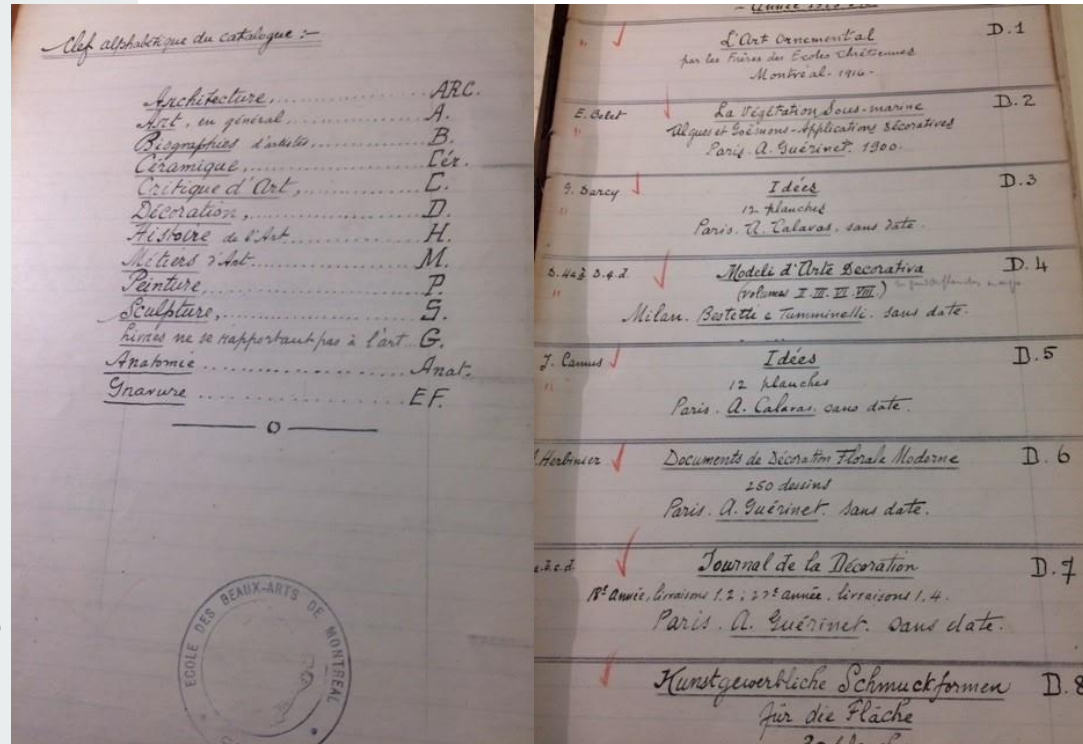 Clef alphabétique du catalogue :-
Architecture, ........ ARC.
Art, en général ........ A.
Biographies d'artistes, ........ B.
Céramique, ........ Cér.
Critique d'Art, ........ C.
Décoration, ........ D.
Histoire de l'Art ........ H.
Métiers d'Art ........ M.
Peinture, ........ P.
Sculpture, ........ S.
Livres ne se rapportant pas à l'art .. G.
Anatomie ........ Anat.
Gravure ........ EF.
ECOLE DES BEAUX-ARTS DE MONTREAL
- Année
" L'Art Ornemental D.1
par les Frères des Ecoles Chrétiennes
Montréal - 1916 -
E. Belet La Végétation Sous-marine D.2
" Algues et Goémons - Applications Décoratives
Paris. A. Guérinet. 1900.
G. Darcy Idées D.3
" 12 planches
Paris. A. Calavas, sans date.
Modeli d'Arte Decorativa D.4
" (volumes II. III. VI. VIII.)
Milan. Bestetti e Tumminelli. sans date.
J. Camus Idées D.5
" 12 planches
Paris. A. Calavas, sans date.
Herbinier Documents de Décoration Florale Moderne D.6
250 dessins
Paris. A. Guérinet. sans date.
Journal de la Décoration D.7
18e Année, livraisons 1.2 ; 22e année, livraisons 1.4.
Paris. A. Guérinet. sans date.
Kunstgewerbliche Schmuckformen D.8
für die Fläche